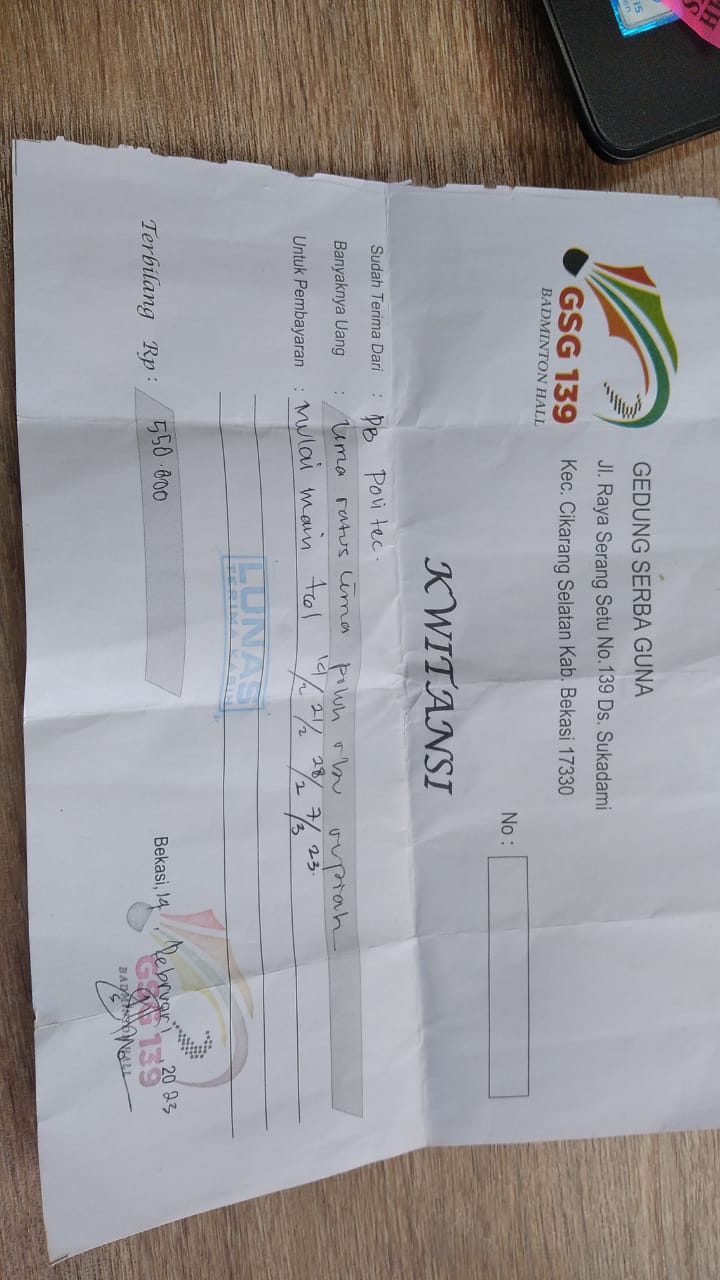 GSG 139
BADMINTON HALL
GEDUNG SERBA GUNA
Jl. Raya Serang Setu No.139 Ds. Sukadami
Kec. Cikarang Selatan Kab. Bekasi 17330
No :
KWITANSI
Sudah Terima Dari : PB Politec.
Banyaknya Uang : lima ratus lima puluh ribu rupiah
Untuk Pembayaran : Mulai main tgl 14/2 21/2 28/2 7/3 23.
LUNAS
TERIMA KASIH
Terbilang Rp : 550.000
Bekasi, 14, Februari, 2023
GSG 139
BADMINTON HALL